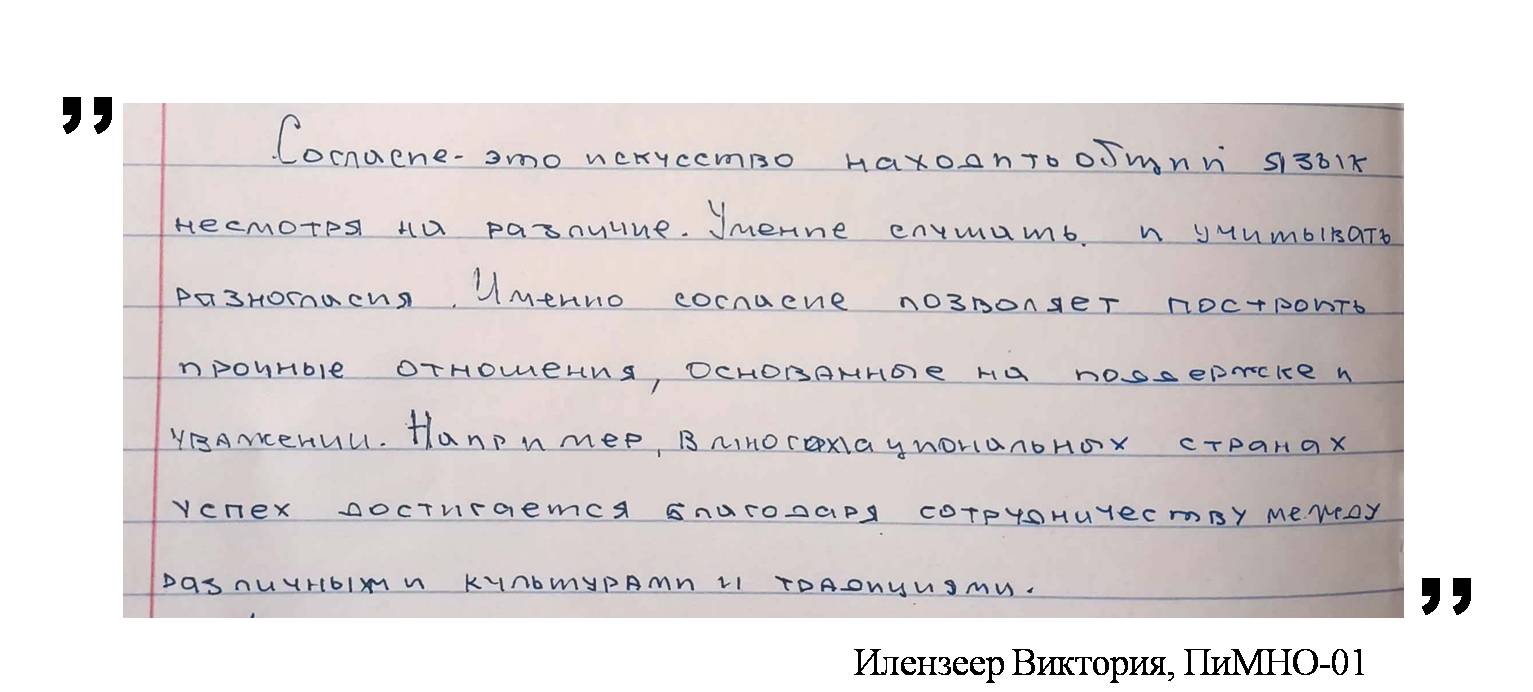 Согласие - это искусство находить общий язык
несмотря на различие. Умение слушать и учитывать
разногласия. Именно согласие позволяет построить
прочные отношения, основанные на поддержке и
уважении. Например, в многонациональных странах
успех достигается благодаря сотрудничеству между
различными культурами и традициями.
Илензеер Виктория, ПиМНО-01